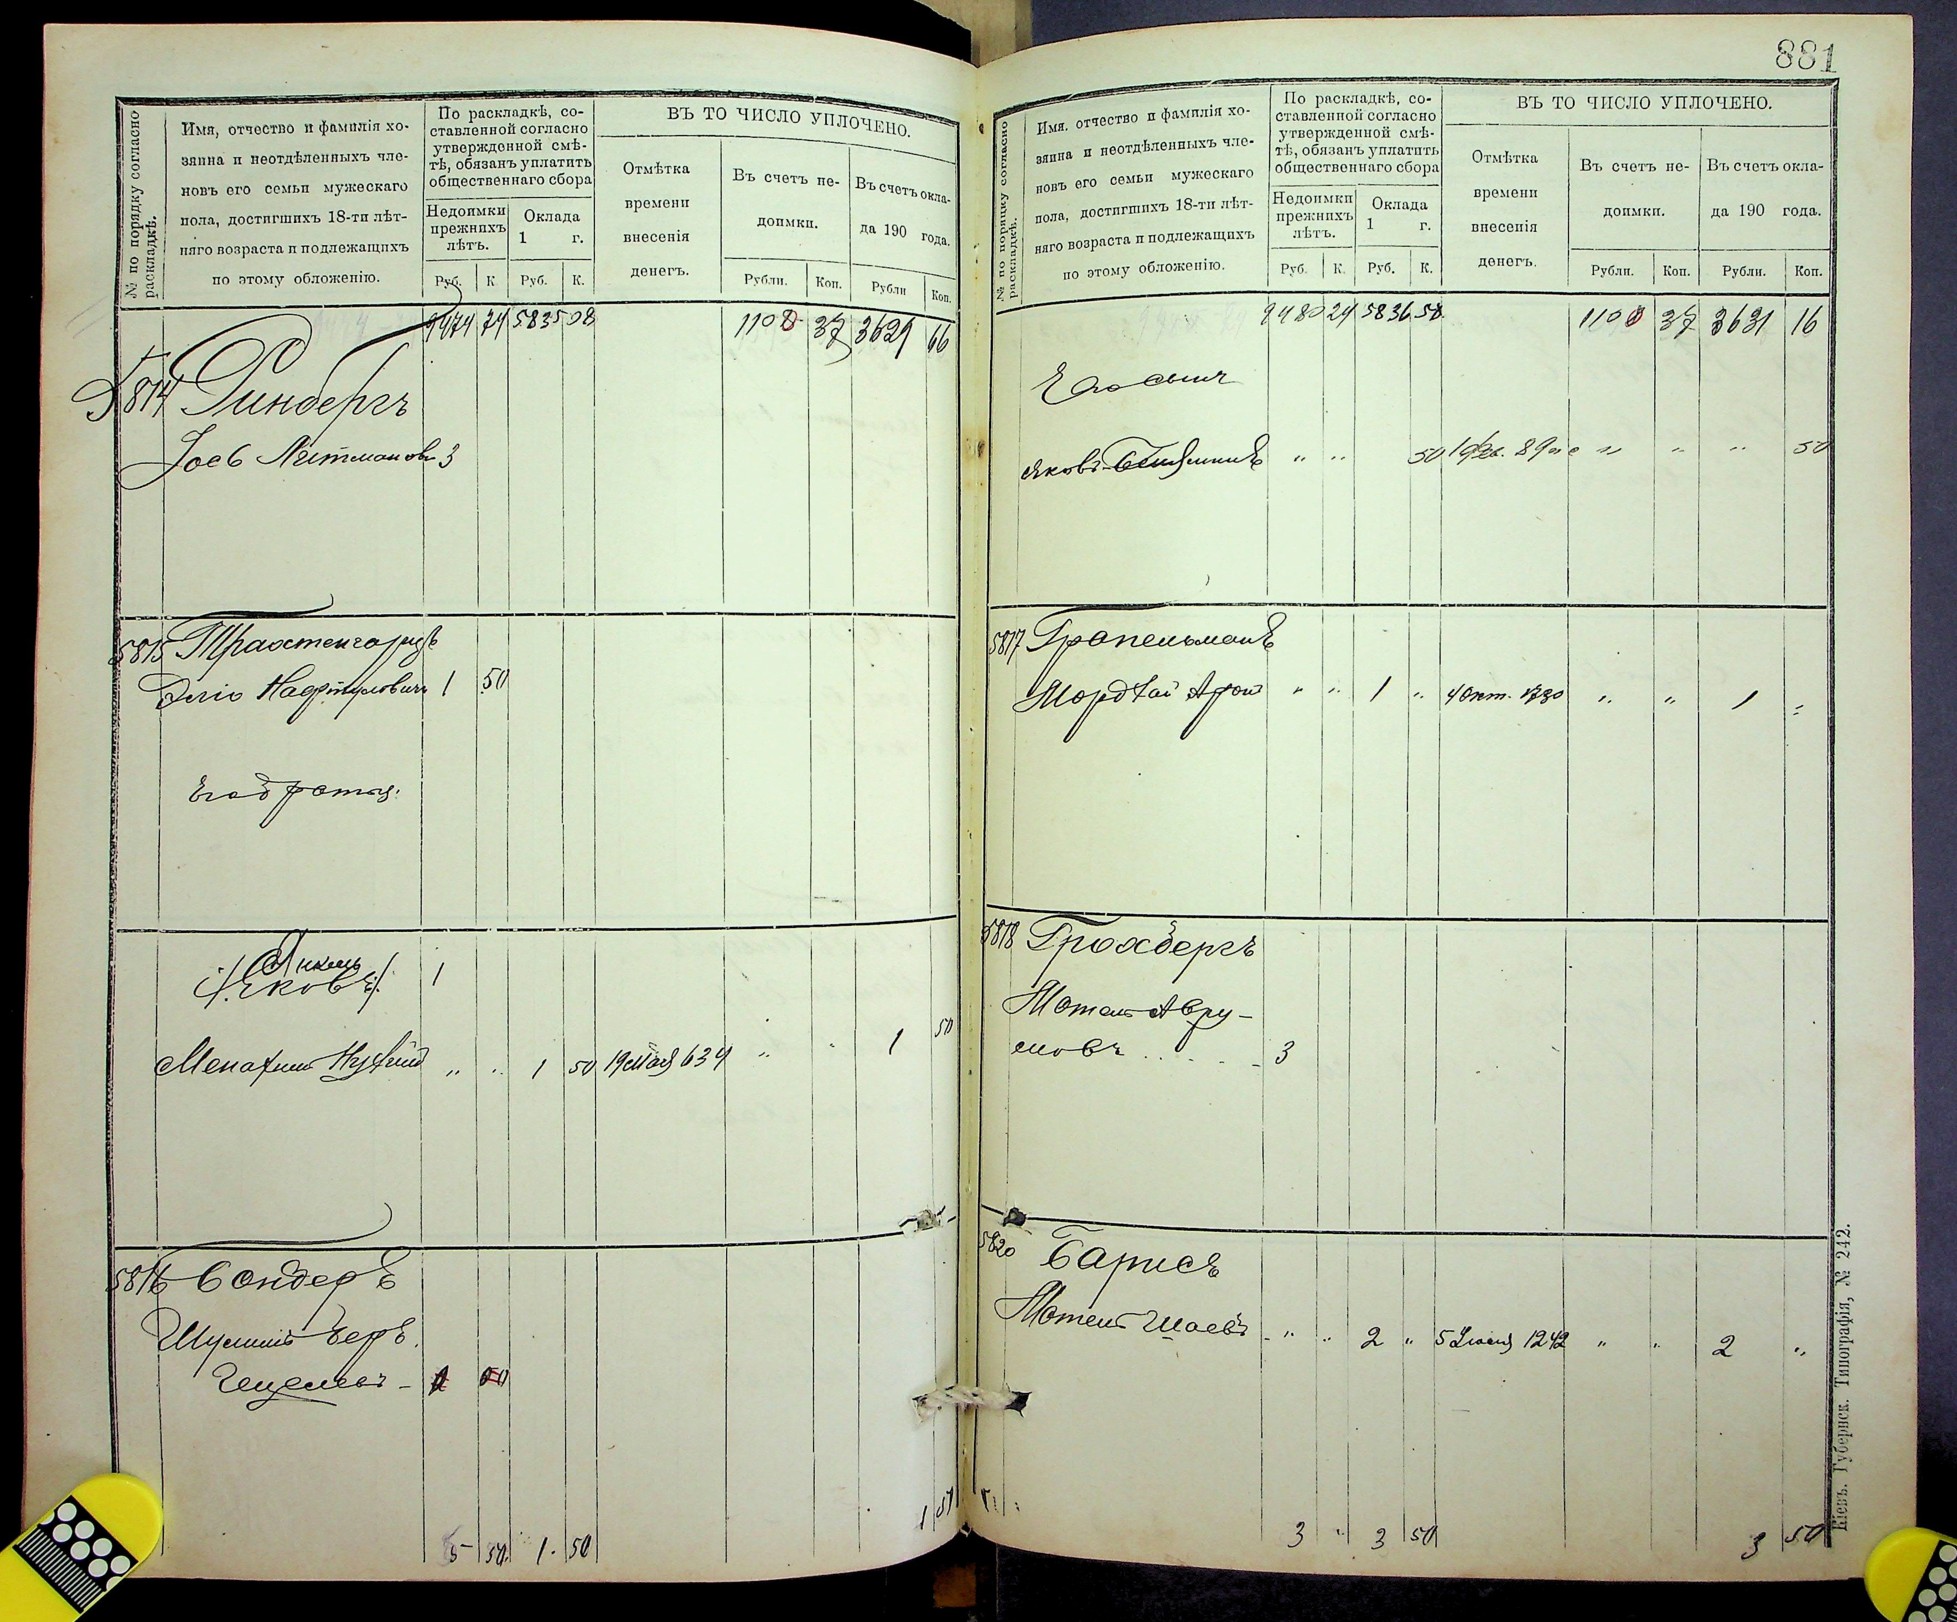 № по порядку согласно раскладкѣ.
Имя, отчество и фамилія хо-
зяина и неотдѣленныхъ чле-
новъ его семьи мужескаго
пола, достигшихъ 18-ти лѣт-
няго возраста и подлежащихъ
по этому обложенію.
По раскладкѣ, со-
ставленной согласно
утвержденной смѣ-
тѣ, обязанъ уплатить
общественнаго сбора
Недоимки
прежнихъ
лѣтъ.
Оклада
1 г.
Руб. К. Руб. К.
ВЪ ТО ЧИСЛО УПЛОЧЕНО.
Отмѣтка
времени
внесенія
денегъ.
Въ счетъ не-
доимки.
Рубли. Коп.
Въ счетъ окла-
да 190 года.
Рубли Коп.
9474 74 5835 08 1108 37 3629 66
5814 Гинбергъ
Іосъ 3
5815 Трахтенгарцъ
Эліо Нафтуловичъ 1 50
Его братья:
Янкель
/:Яковъ:/ 1
Менахимъ Нухимъ „ „ 1 50 19 мая 634 „ „ 1 50
5816 Бондеръ
Шулимъ Беръ
Гецелевъ - 1 50
5 50 1 50 1 50
881
№ по порядку согласно раскладкѣ.
Имя, отчество и фамилія хо-
зяина и неотдѣленныхъ чле-
новъ его семьи мужескаго
пола, достигшихъ 18-ти лѣт-
няго возраста и подлежащихъ
по этому обложенію.
По раскладкѣ, со-
ставленной согласно
утвержденной смѣ-
тѣ, обязанъ уплатить
общественнаго сбора
Недоимки
прежнихъ
лѣтъ.
Оклада
1 г.
Руб. К. Руб. К.
ВЪ ТО ЧИСЛО УПЛОЧЕНО.
Отмѣтка
времени
внесенія
денегъ.
Въ счетъ не-
доимки.
Рубли. Коп.
Въ счетъ окла-
да 190 года.
Рубли. Коп.
9480 24 5836 58 1108 37 3631 16
Его сынъ
Яковъ-Беньяминъ „ „ 50 „ „ „ 50
5817 Грапельманъ
Мордхай Арон „ „ 1 „ 4 Окт. 1730 „ „ 1 „
5818 Грохбергъ
Мотель Авру-
мовъ 3
5820 Барисъ
Мотель Шаевъ „ „ 2 „ 5 Іюля 1242 „ „ 2 „
3 „ 3 50 3 50
Кіевъ. Губернск. Типографія, № 242.